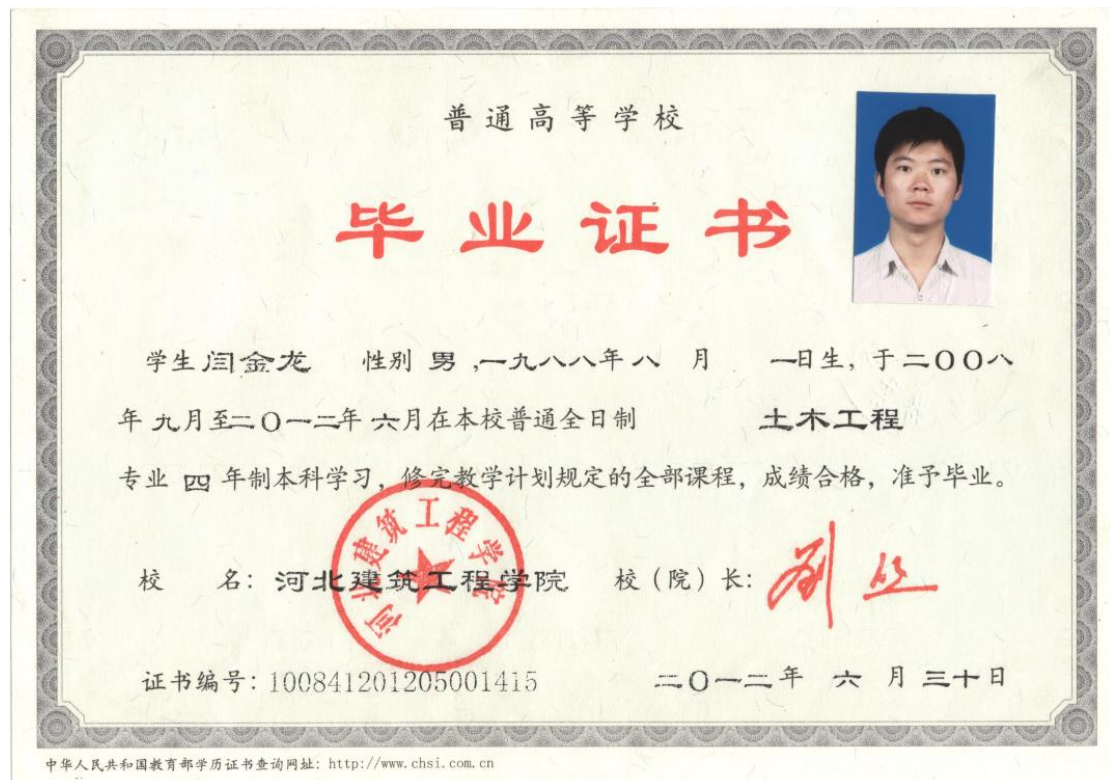 普通高等学校
毕业证书
学生闫金龙 性别 男 ,一九八八年八 月 一日生, 于二〇〇八
年 九月至二〇一二年 六月在本校普通全日制 土木工程
专业 四 年制本科学习, 修完教学计划规定的全部课程, 成绩合格, 准予毕业。
河北建筑工程学院
校 名: 河北建筑工程学院 校(院)长:
证书编号: 100841201205001415 二〇一二年 六 月 三十日
中华人民共和国教育部学历证书查询网址: http://www.chsi.com.cn